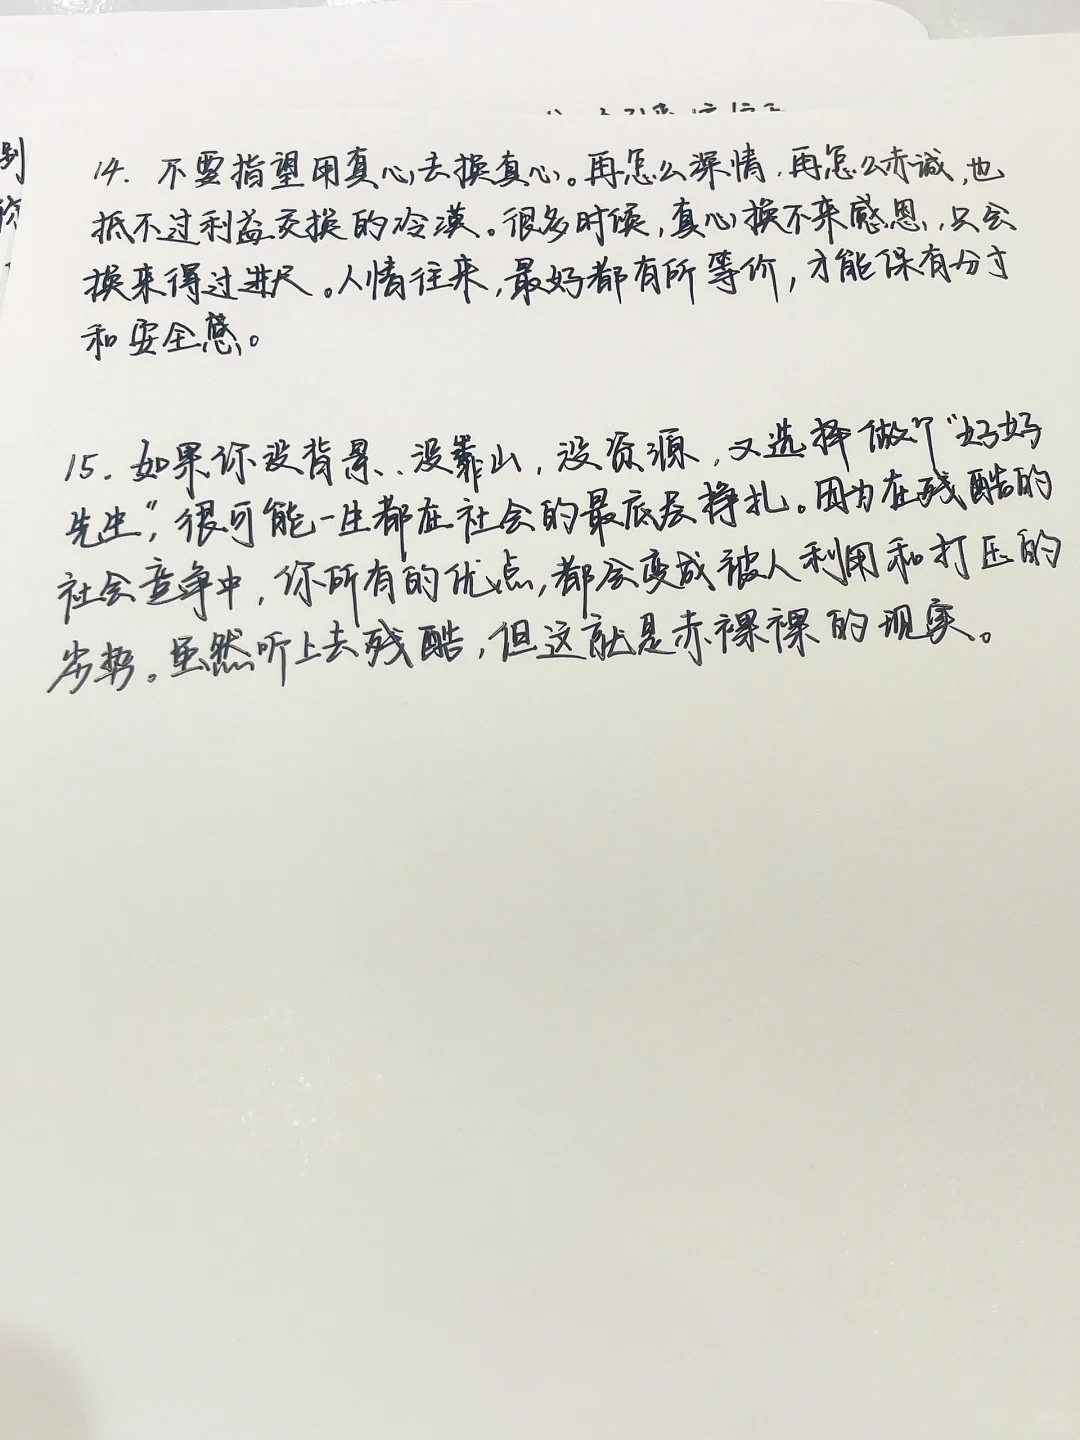 别
14. 不要指望用真心去换真心。再怎么深情,再怎么赤诚,也
抵不过利益交换的冷漠。很多时候,真心换不来感恩,只会
换来得过进尺。人情往来,最好都有所等价,才能保有分寸
和安全感。
15. 如果你没背景、没靠山,没资源,又选择做个“好好
先生”,很可能一生都在社会的最底层挣扎。因为在残酷的
社会竞争中,你所有的优点,都会变成被人利用和打压的
劣势。虽然听上去残酷,但这就是赤裸裸的现实。